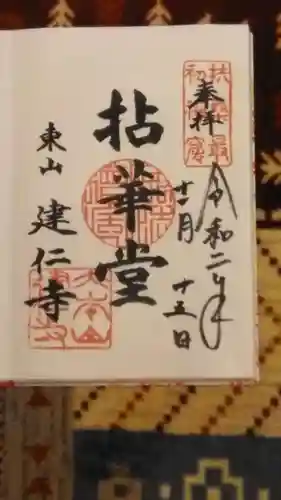 奉拝
令和二年
十一月
十五日
拈華堂
東山
建仁寺